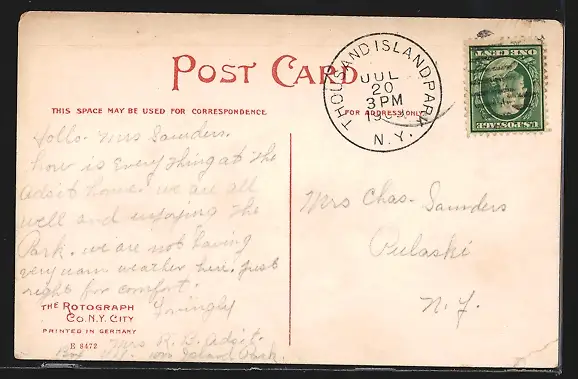 POST CARD
THOUSAND ISLAND PARK
JUL
20
3 PM
N.Y.
U.S. POSTAGE
ONE CENT
THIS SPACE MAY BE USED FOR CORRESPONDENCE.
FOR ADDRESS ONLY
Hello- Mrs Saunders.
how is Everything at the
Adsit home. we are all
well and enjoying the
Park. we are not having
very warm weather here. just
right for comfort.
Lovingly
Mrs R. B. Adsit.
Box Island Park.
Mrs Chas. Saunders
Pulaski
N.Y.
THE ROTOGRAPH
CO. N.Y. CITY
PRINTED IN GERMANY
E 8472